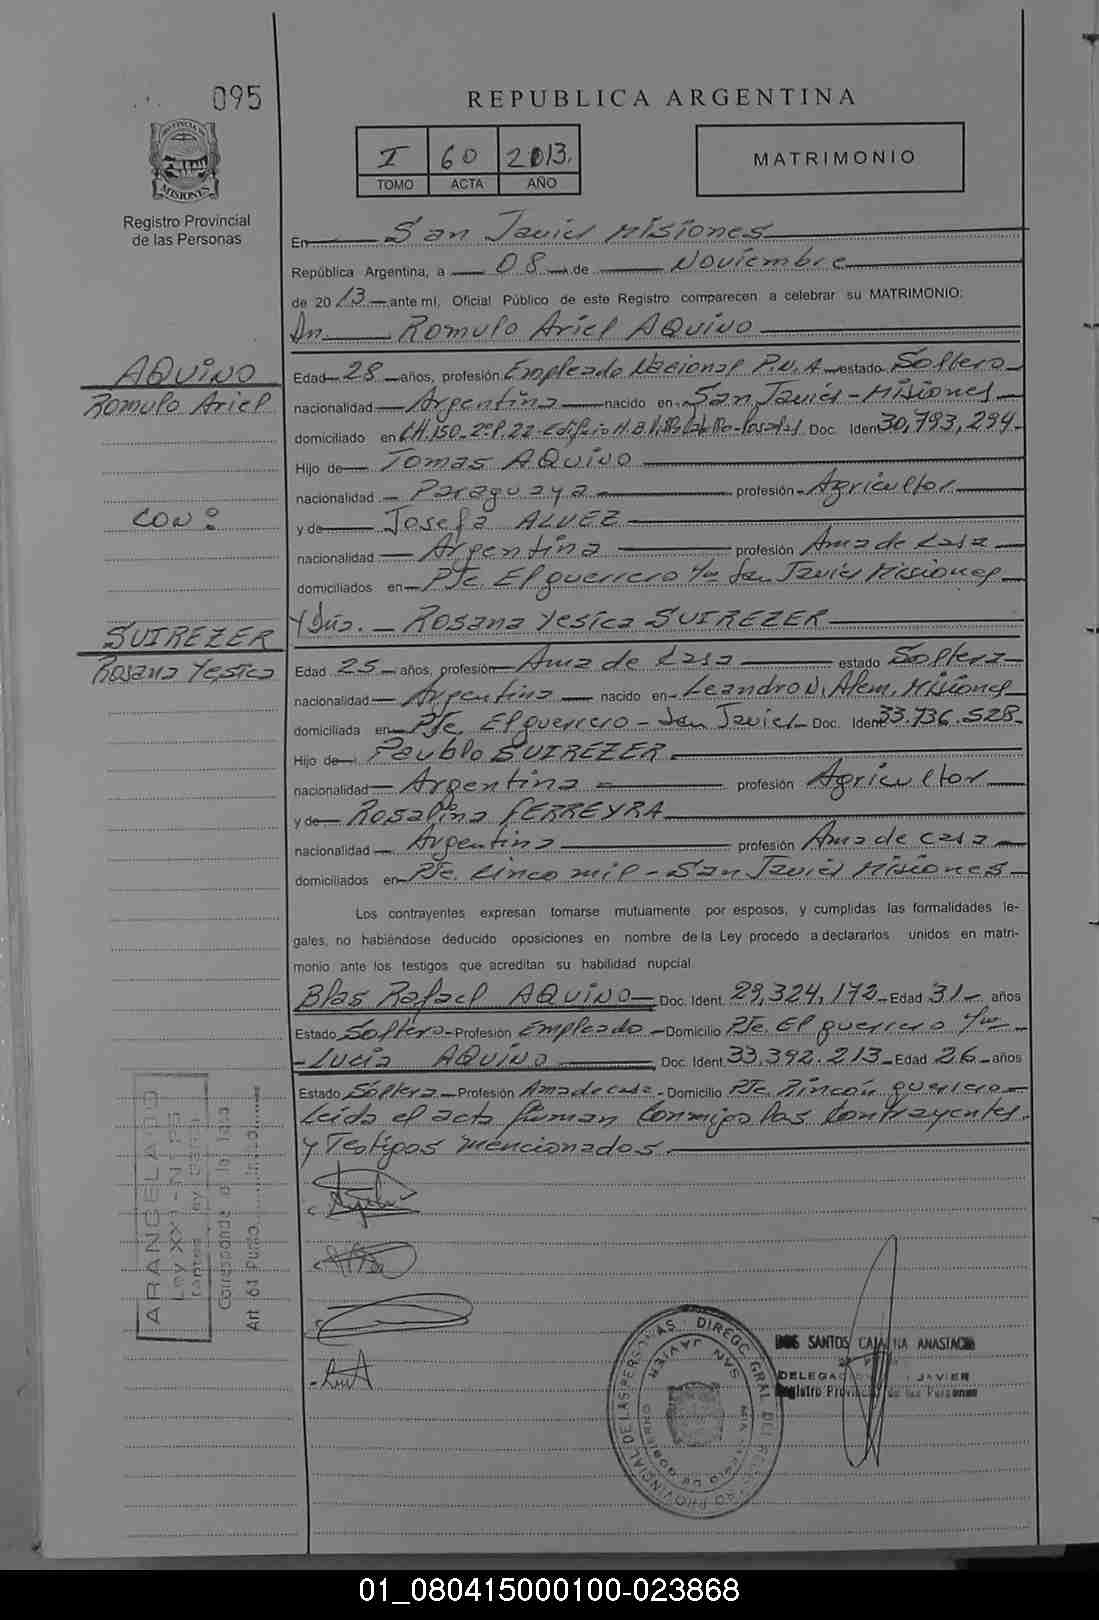 095
REPUBLICA ARGENTINA
I 60 2013.
TOMO ACTA AÑO
MATRIMONIO
MISIONES
Registro Provincial
de las Personas
En San Javier Misiones
República Argentina, a 08 de Noviembre
de 2013 ante mí, Oficial Público de este Registro comparecen a celebrar su MATRIMONIO:
Dn Romulo Ariel AQUINO
AQUINO
Romulo Ariel
CON:
SUIREZER
Rosana Yesica
Edad 28 años, profesión Empleado Nacional P.N.A estado Soltero
nacionalidad Argentina nacido en San Javier - Misiones
domiciliado en CH.150. 2º P. 22 Edificio Doc. Ident 30,793,294
Hijo de Tomas AQUINO
nacionalidad Paraguaya profesión Agricultor
y de Josefa ALVEZ
nacionalidad Argentina profesión Ama de Casa
domiciliados en Pje. El guerrero San Javier Misiones
Y Dña. Rosana Yesica SUIREZER
Edad 25 años, profesión Ama de Casa estado Soltera
nacionalidad Argentina nacido en Leandro N. Alem. Misiones
domiciliada en Pje. El guerrero - San Javier Doc. Ident 33.736.528
Hijo de Paublo SUIREZER
nacionalidad Argentina profesión Agricultor
y de Rosalina FERREYRA
nacionalidad Argentina profesión Ama de casa
domiciliados en Pje. Cinco mil - San Javier Misiones
Los contrayentes expresan tomarse mutuamente por esposos, y cumplidas las formalidades le-
gales, no habiéndose deducido oposiciones en nombre de la Ley procedo a declararlos unidos en matri-
monio ante los testigos que acreditan su habilidad nupcial.
Blas Rafael AQUINO Doc. Ident. 29,324,172 Edad 31 años
Estado Soltero Profesión Empleado Domicilio Pje. El guerrero
Lucia AQUINO Doc. Ident. 33,392.213 Edad 26 años
Estado Soltera Profesión Ama de casa Domicilio Pje. Rincón guerrero
Leída el acta firman Conmigo los Contrayentes
y Testigos mencionados.
ARANCELADO
Corresponde a la Tasa
Art 61 Punto Inciso
DIREC. GRAL. DEL REGISTRO PROVINCIAL DE LAS PERSONAS
SAN JAVIER
DOS SANTOS ANASTACIA
JAVIER
Registro Provincial de las Personas
01_080415000100-023868